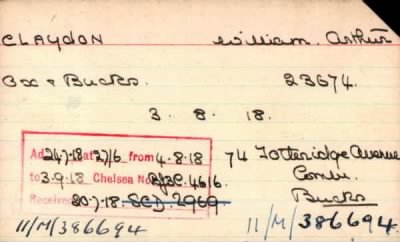 CLAYDON William. Arthur
Ox & Bucks. 23674.
3. 8. 18.
Ad 24.7.18 at 27/6 from 4.8.18 74 Totteridge Avenue
to 3.9.18 Chelsea No. 4616. Combe.
Received 20.7.18. SCD. 2969 Bucks
11/M/386694 11/M/386694.